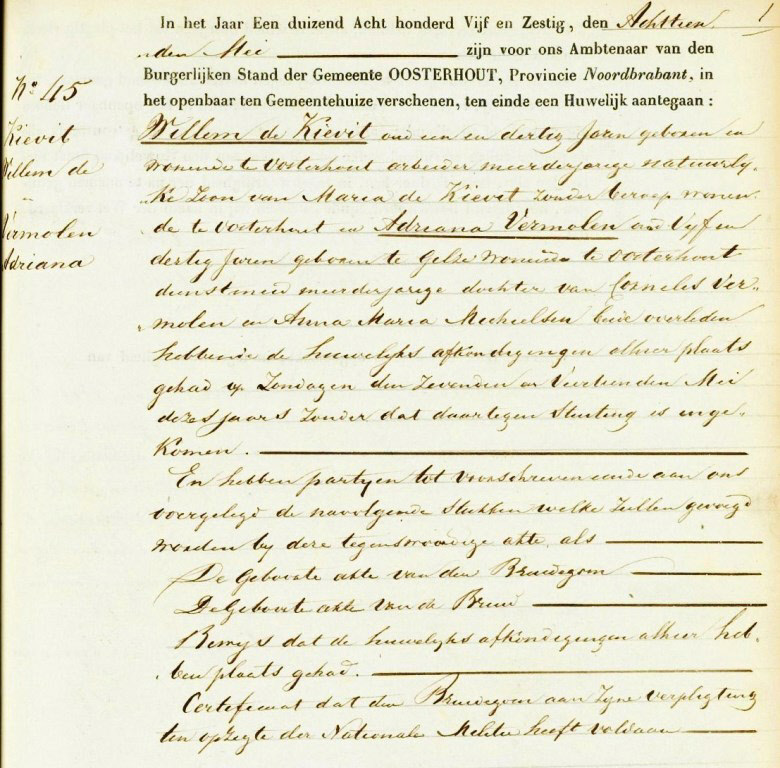 1
In het Jaar Een duizend Acht honderd Vijf en Zestig, den Achttien
den Mei zijn voor ons Ambtenaar van den
Burgerlijken Stand der Gemeente OOSTERHOUT, Provincie Noordbrabant, in
het openbaar ten Gemeentehuize verschenen, ten einde een Huwelijk aantegaan :
No 45
Kievit
Willem de
"
Vermolen
Adriana
Willem de Kievit oud een en dertig Jaren geboren en
wonende te Oosterhout arbeider meerderjarige natuurly-
ke Zoon van Maria de Kievit zonder beroep wonen-
de te Oosterhout en Adriana Vermolen oud Vyf en
dertig Jaren geboren te Gilze wonende te Oosterhout
dienstmeid meerderjarige dochter van Cornelis Ver-
molen en Anna Maria Michielsen beide overleden
hebbende de huwelyks afkondigingen alhier plaats
gehad op Zondagen den Zevenden en Veertienden Mei
dezes jaars zonder dat daartegen Stuiting is inge-
komen.
En hebben partyen tot voorschreven einde aan ons
voorgelegd de navolgende Stukken welke zullen gevoegd
worden by deze tegenswoordige akte, als
De Geboorte akte van den Bruidegom
De Geboorte akte van de Bruid
Bewys dat de huwelyks afkondigingen alhier heb-
ben plaats gehad.
Certificaat dat den Bruidegom aan Zyne verpligting
ten opzigte der Nationale Militie heeft voldaan